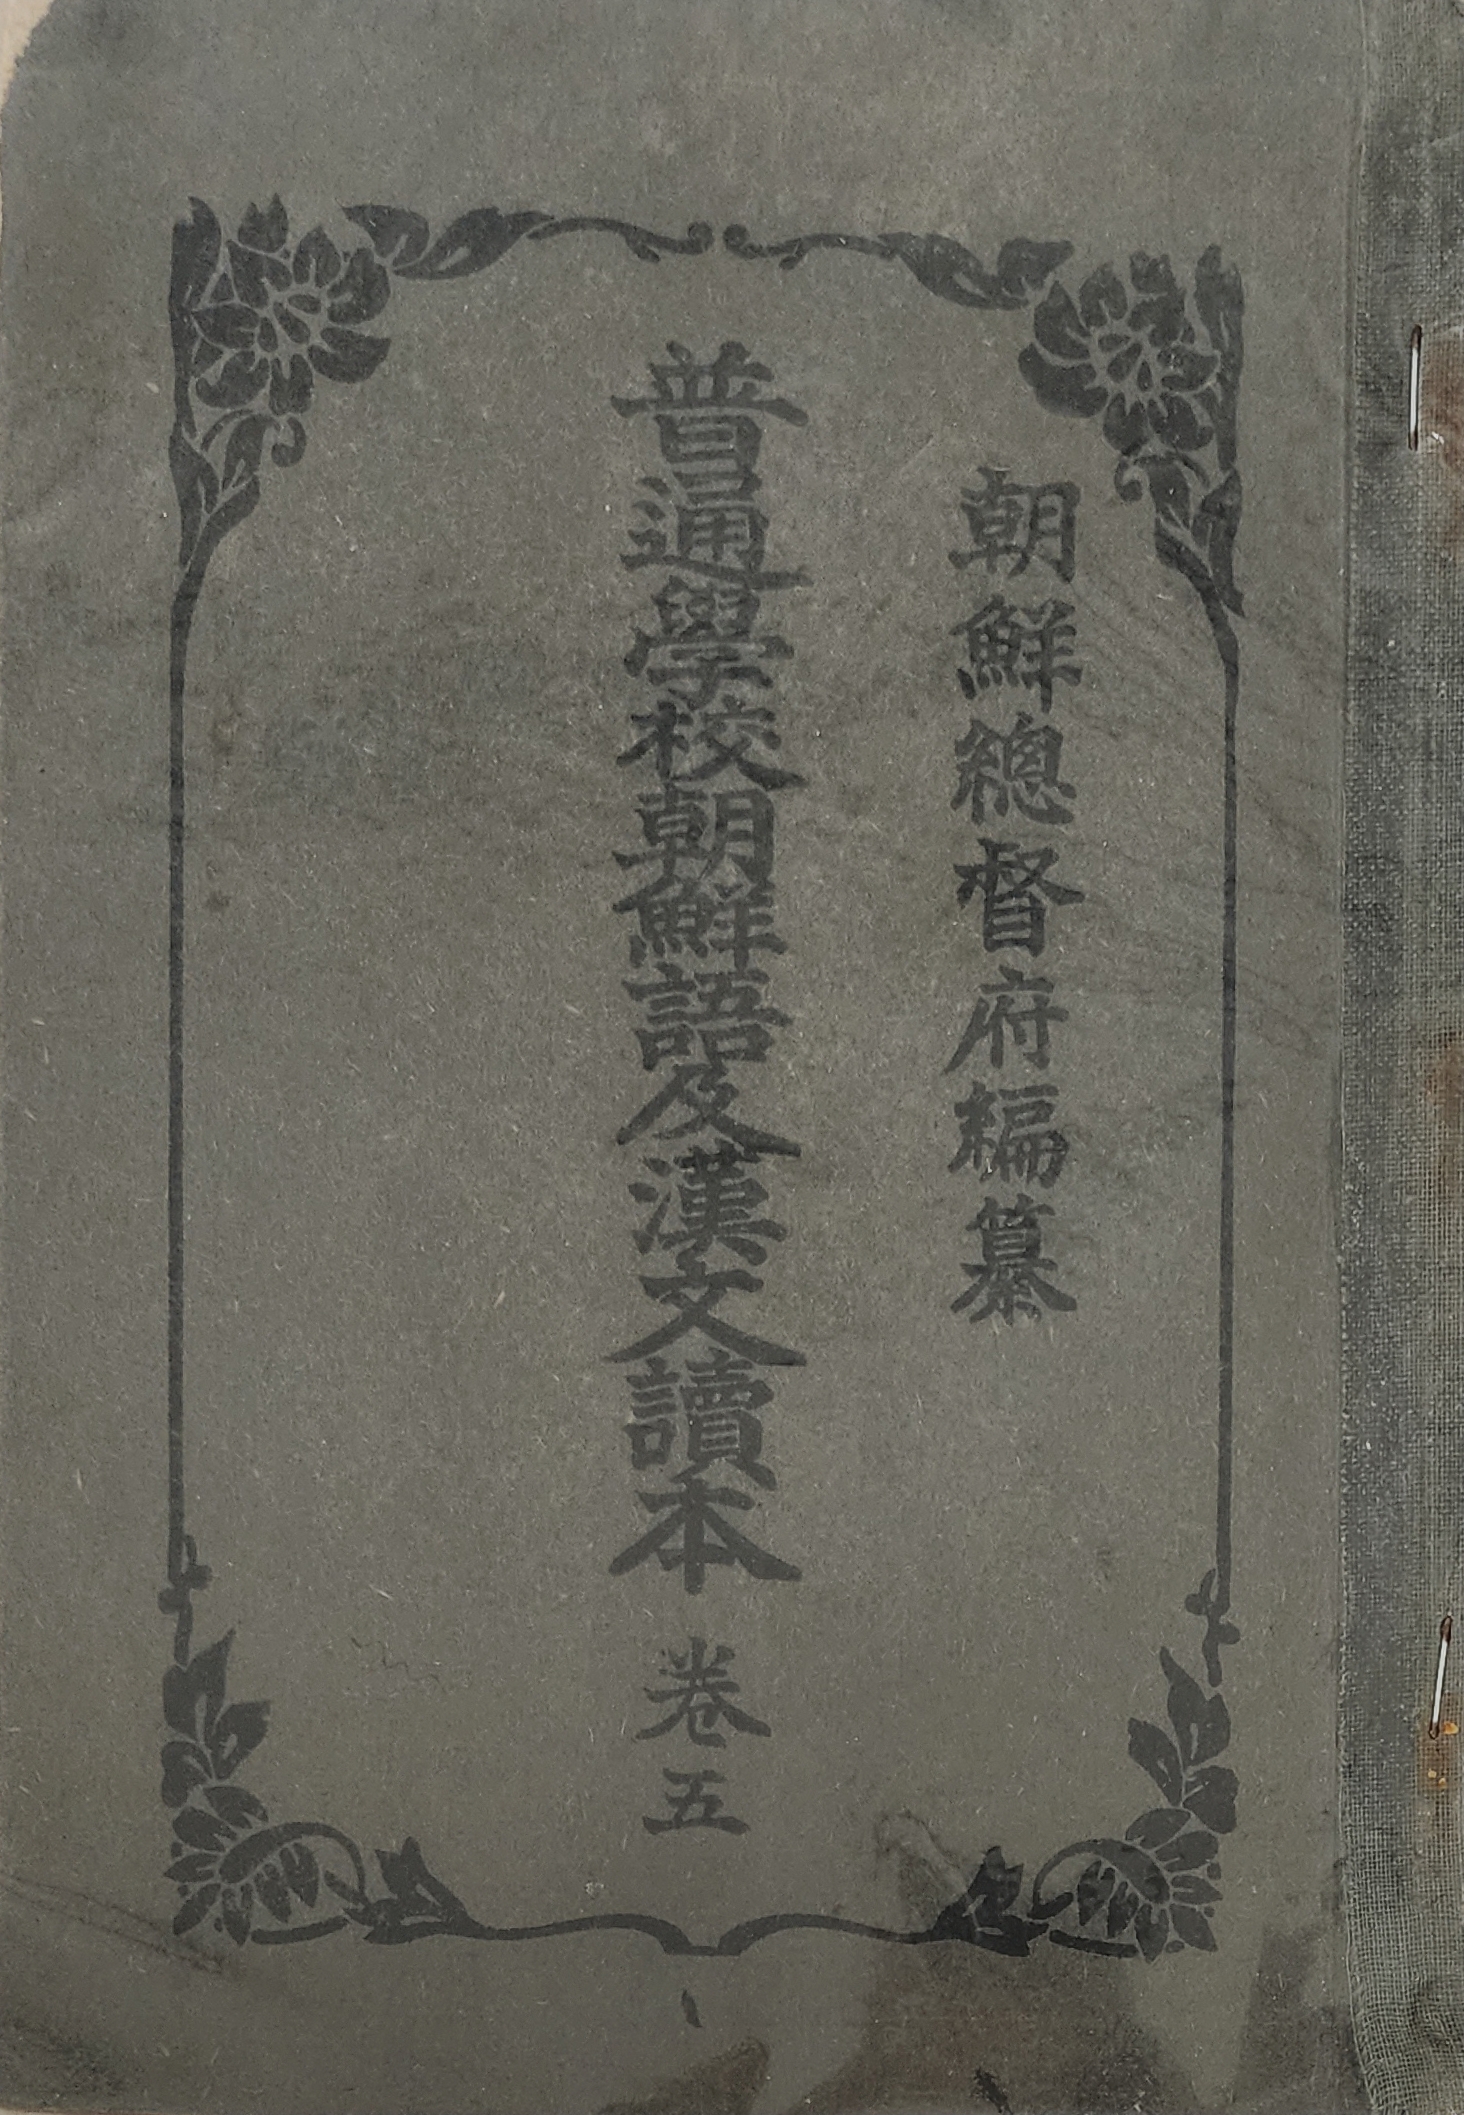 朝鮮總督府編纂
普通學校朝鮮語及漢文讀本 卷五